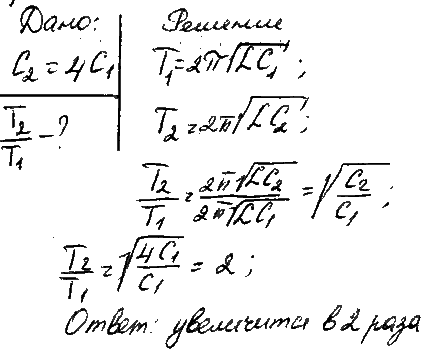 Дано:
C₂ = 4C₁
T₂/T₁ – ?
Решение
T₁ = 2π√(LC₁);
T₂ = 2π√(LC₂);
T₂/T₁ = 2π√(LC₂)/2π√(LC₁) = √(C₂/C₁);
T₂/T₁ = √(4C₁/C₁) = 2;
Ответ: увеличится в 2 раза